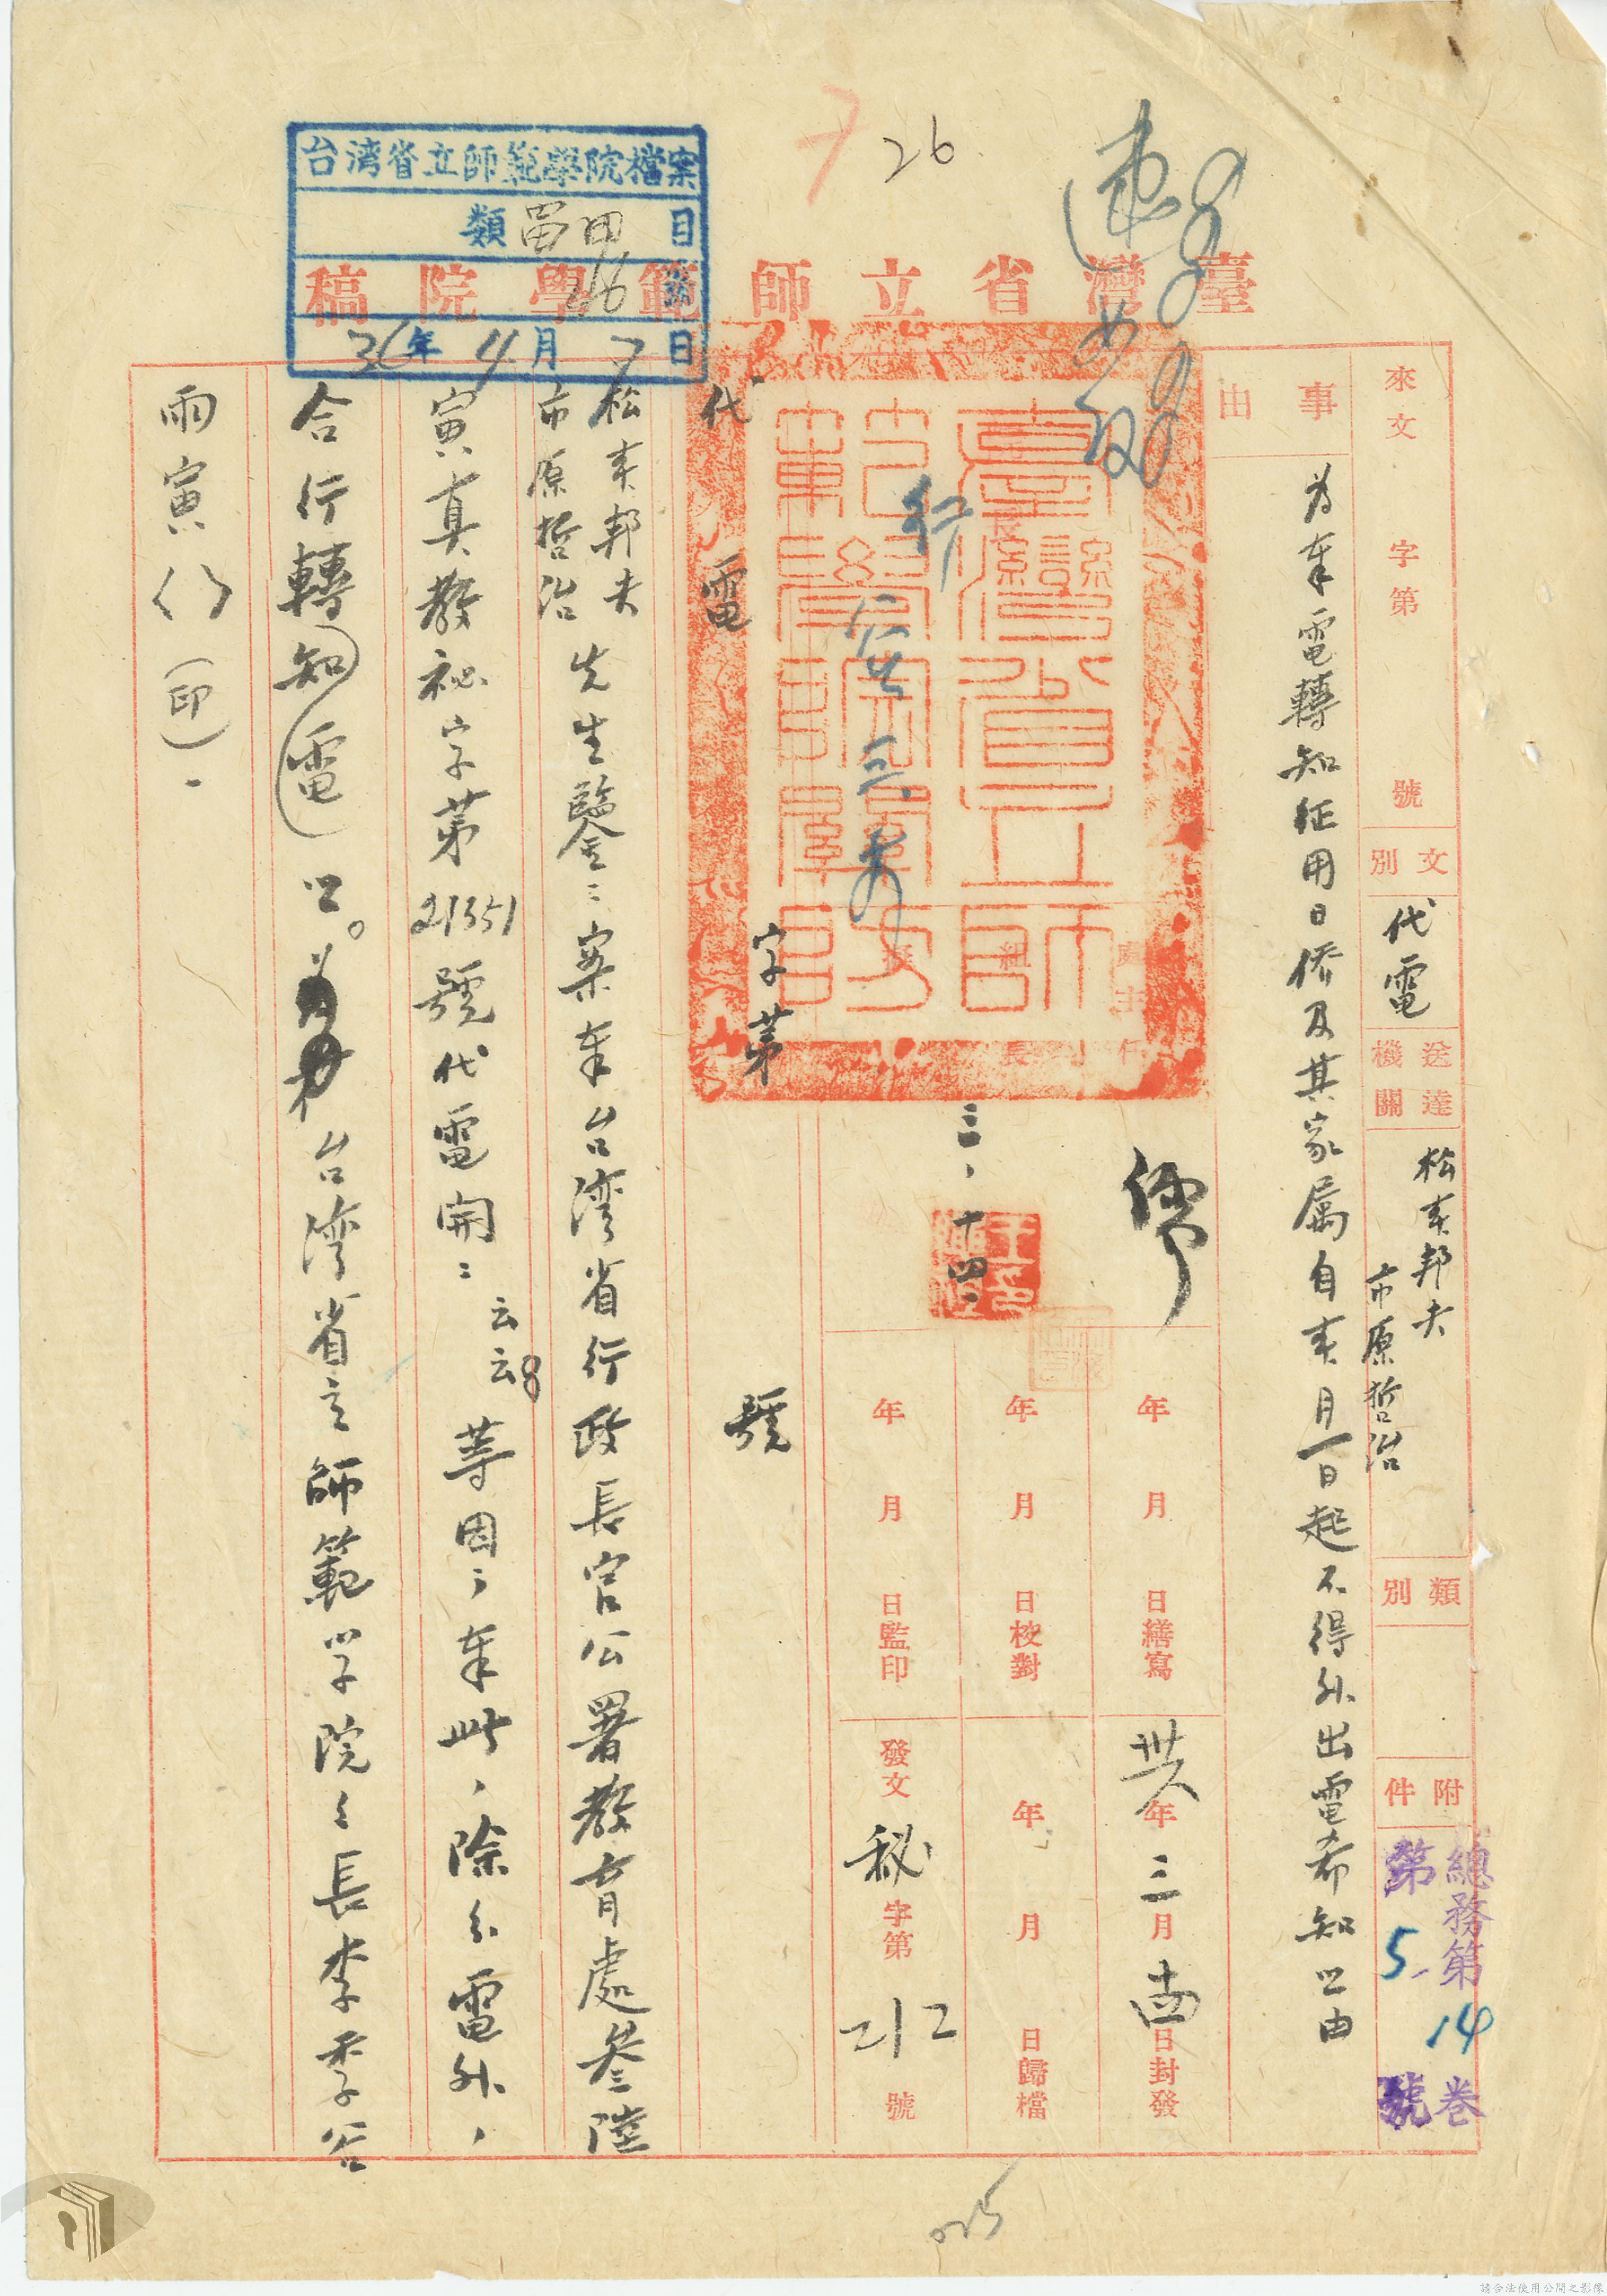 26
臺灣省立師範學院稿
台湾省立師範學院檔案
類 留用 目
26
36年4月7日
來文 字第 號
文別 代電
送達機關 松本邦夫 市原哲治
類別
附件
總務第14卷
第5號
事由
為奉電轉知征用日僑及其家屬自本月一日起不得外出電希知照由
年 月 日繕寫
年 月 日校對
年 月 日監印
卅六年三月十四日封發
年 月 日歸檔
發文 秘字第 212 號
三、十四、
行
代電 字第 號
松本邦夫
市原哲治
先生鑒：案奉台湾省行政長官公署教育處叁陸
寅真教祕字第21351號代電開：云云等因；奉此，除分電外，
合行轉知電
台湾省立師範学院院長李季谷
寅 （印）。
025
請合法使用公開之影像